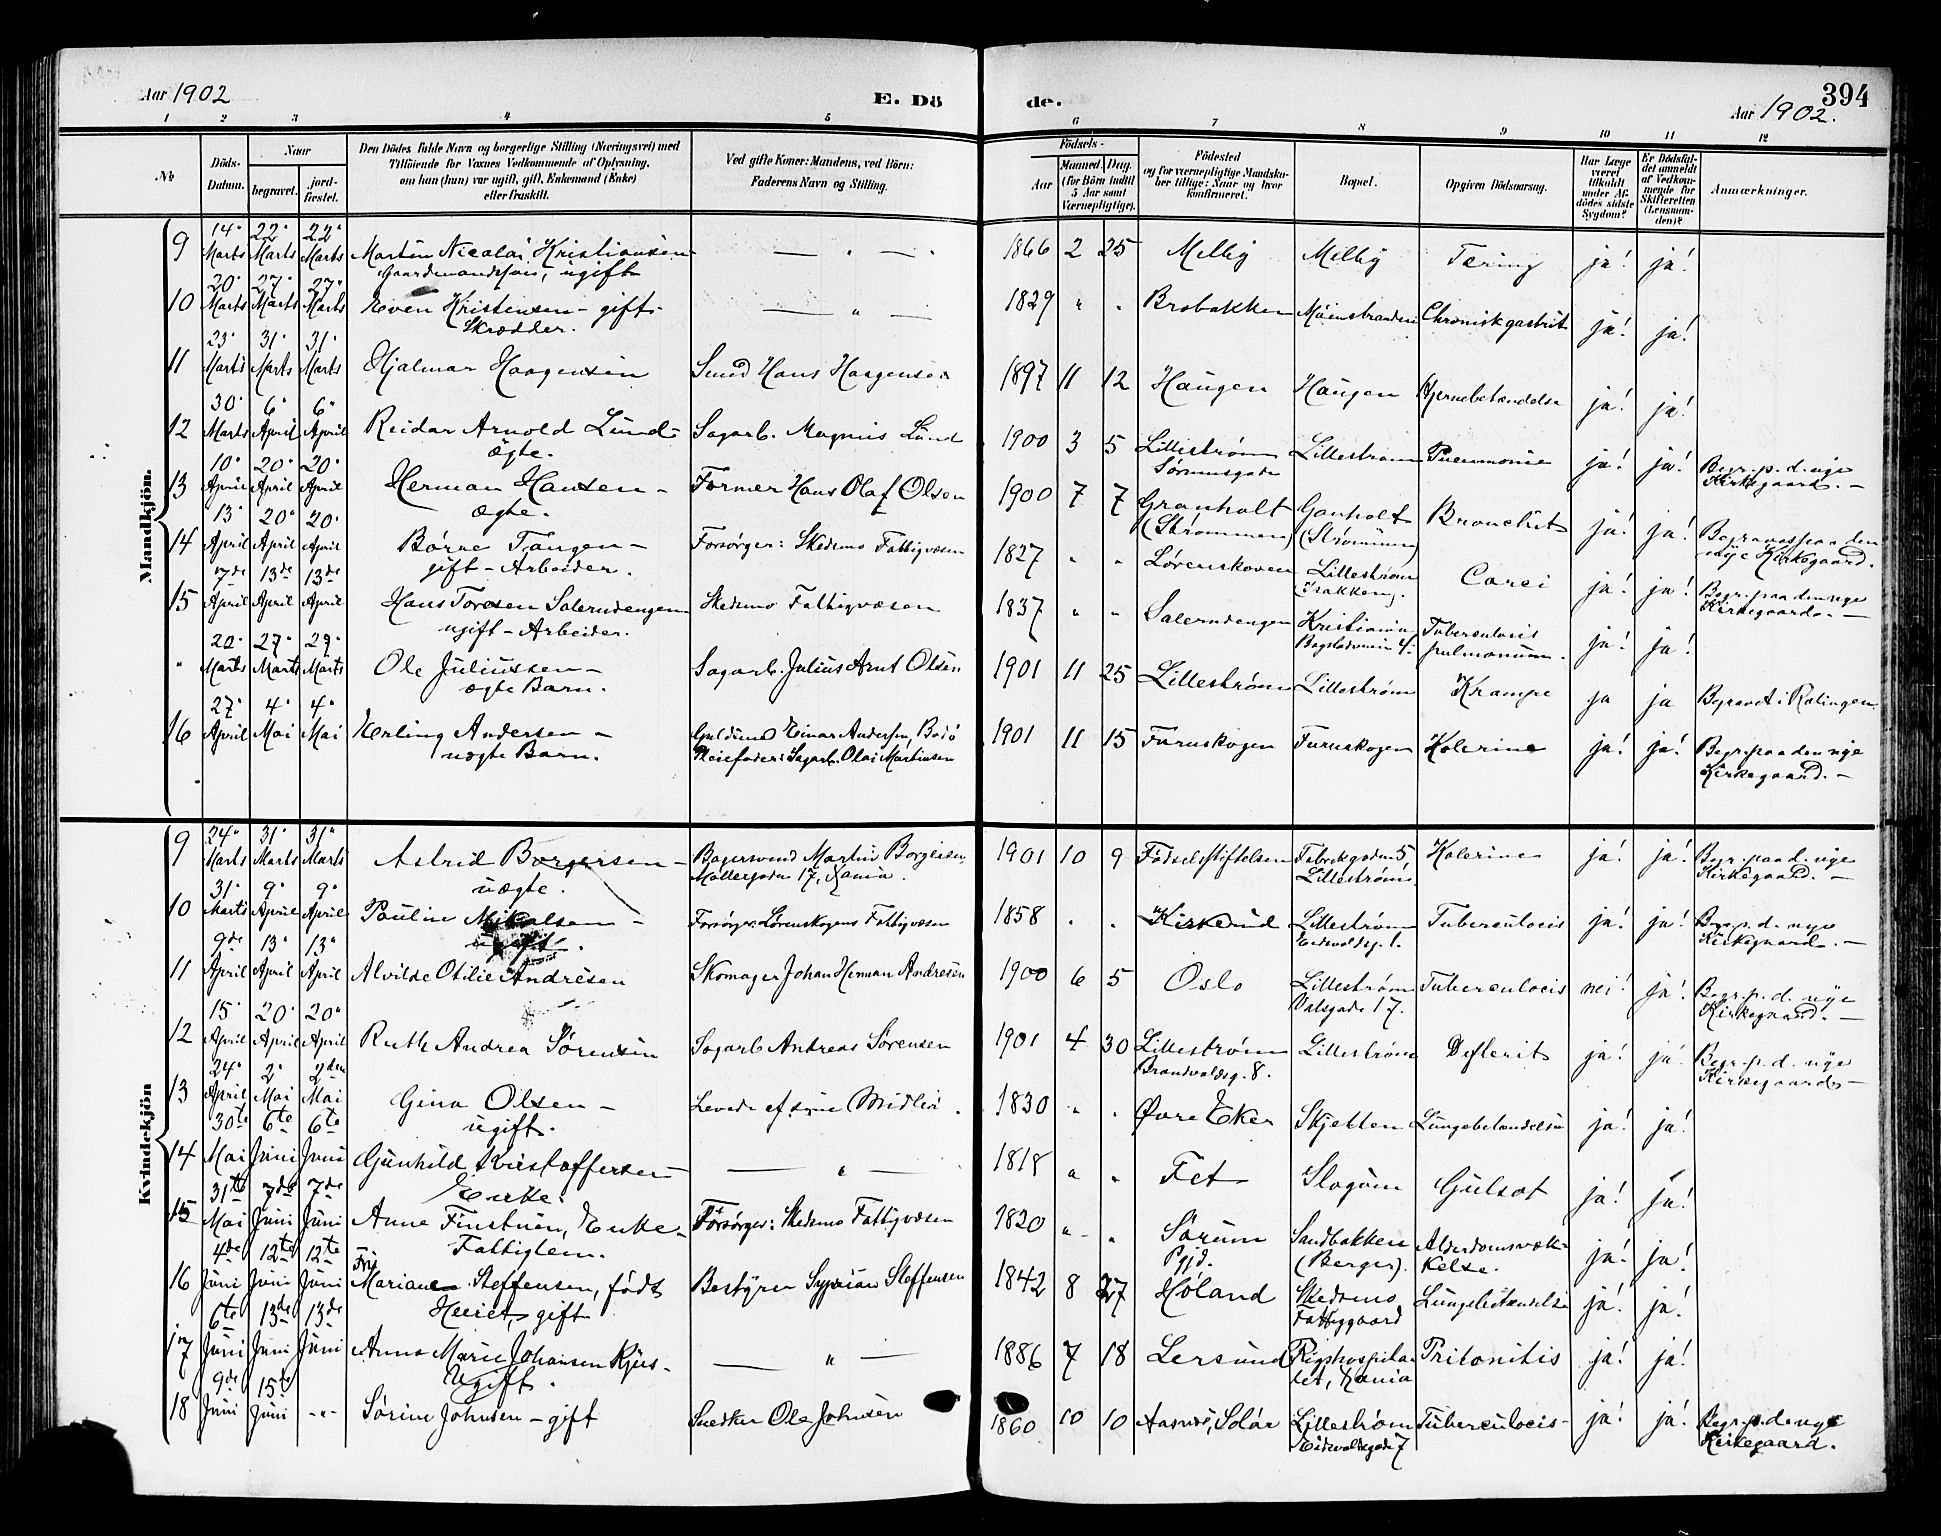 Aar 1902
E. Dö
de.
394
Aar 1902.
1 2 3 4 5 6 7 8 9 10 11 12
No
Döds-Datum.
Naar
begravet.
jord-fæstet.
Den Dödes fulde Navn og borgerlige Stilling (Næringsvei) med
Tilföiende for Voxnes Vedkommende af Oplysning,
om han (hun) var ugift, gift, Enkemand (Enke)
eller fraskilt.
Ved gifte Koner: Mandens, ved Börn:
Faderens Navn og Stilling.
Födsels-
Aar
Maaned. Dag.
(for Börn indtil
5 Aar samt
Værnepligtige).
Födested
og for værnepligtige Mandskaber tillige: Naar og hvor
konfirmeret.
Bopæl.
Opgiven Dödsaarsag.
Har Læge været tilkaldt under Afdödes sidste Sygdom?
Er Dödsfaldet anmeldt af Vedkommende for Skifteretten (Lensmanden)?
Anmærkninger.
Mandkjön.
9 14" Marts 22" Marts 22" Marts Martin Nicolai Kristiansen — " — 1866 2 25 Melby Melby Tæring ja! ja!
Gaardmandssøn, ugift
10 20" Marts 27" Marts 27" Marts Even Kristensen – gift. — " — 1829 " " Brobakken Chronisk gastrit ja! ja!
Skrædder.
11 23" Marts 31" Marts 31" Marts Hjalmar Haagensen Smed Hans Haagensen 1897 11 12 Haugen Haugen Hjernebetændelse ja! ja!
12 30" Marts 6" April 6" April Reidar Arnold Lund Sagarb. Magnus Lund 1900 3 5 Lillestrøm Lillestrøm Pneumonie ja! ja! Begr. p. d. nye
ægte. Kirkegaard. —
13 10" April 20" April 20" April Herman Hansen – Former Hans Olaf Olsen 1900 7 7 Granholt Granholt Bronchit ja! ja! Begraves paa den
ægte. (Strømmen) (Strømmen) nye Kirkegaard.
14 13" April 20" April 20" April Børre Tangen – Forsørger: Skedsmo Fattigvæsen 1827 " " Lørenskoven Lillestrøm ja! ja! Begr. paa den nye
gift – Arbeider. Kirkegaard. —
15 7de April 13de April 13de April Hans Toresen Salerudengen Skedsmo Fattigvæsen 1837 " " Salerudengen Kristiania Tuberculocis ja! ja!
ugift – Arbeider. pulmonum.
" 20" Marts 27" Marts 29" Marts Ole Juliussen – Sagarb. Julius Arnt Olsen 1901 11 25 Lillestrøm Lillestrøm Krampe ja ja Begravet i Rælingen
ægte Barn.
16 27" April 4" Mai 4" Mai Herling Andersen – Guldsmed Einar Andersen, Bodø 1901 11 15 Furuskogen Furuskogen Kolerine ja! ja! Begr. paa den nye
uægte Barn. Pleiefader: Sagarb. Olai Martinsen Kirkegaard. —
Kvindekjön
9 24" Marts 31" Marts 31" Marts Astrid Borgersen – Bagersvend Martin Borgersen, 1901 10 9 Fødselsstiftelsen Fabrikgaden 5, Kolerine ja! ja! Begr. paa d. nye
uægte. Møllergaden 17, Kania. Lillestrøm. Kirkegaard. —
10 31" Marts 9" April 9" April Pauline Mikalsen – Forsørger: Lørenskogens Fattigvæsen 1858 " " Kirkerud Lillestrøm Tuberculocis ja! ja! Begr. p. d. nye
ugift. Eidsvoldsg. 1. Kirkegaard. —
11 9de April 13" April 13" April Alvilde Otilie Andresen Skomager Johan Herman Andresen 1900 6 5 Oslo Lillestrøm Tuberculocis nei! ja! Begr. p. d. nye
Valsgade 17. Kirkegaard. —
12 15" April 20" April 20" April Ruth Andrea Sørensen Sagarb. Andreas Sørensen 1901 4 30 Lillestrøm Lillestrøm Defterit ja! ja! Begr. p. d. nye
Brandvoldsg. 8. Kirkegaard —
13 24" April 2" Mai 2den Mai Gina Olsen – Levede af sine Midler. 1830 " " Øvre Eker Skjetten Lungebetændelse ja! ja!
ugift.
14 30te Mai 6te Juni 6te Juni Gunhild Kristoffersen – — " — 1818 " " Fet Gulsot ja! ja!
Enke.
15 31te Mai 7de Juni 7de Juni Anne Finstuen, Enke – Forsørger: Skedsmo Fattigvæsen 1820 " " Sørum Sandbakken Alderdomssvæk-
Fattiglem. Pgjd. (Berger). kelse. ja! ja!
16 4de Juni 12te Juni 12te Juni Fru Mariane Steffensen, født Bestyrer Steffensen 1842 8 27 Høland Skedsmo Lungebetændelse ja! ja!
gift Fattiggaard
17 6te Juni 13de Juni 13de Juni Anna Marie Johansen Kjus – — " — 1886 7 18 Lersund Rigshospita- Pritonitis ja! ja!
Ugift. let, Kania
18 9de Juni 15te Juni –"– Sørine Johnsen – gift Snedker Ole Johnsen 1860 10 10 Aasnes, Solør Lillestrøm Tuberculocis – ja! ja! Begr. p. de nye
Eidsvoldsgade 7 Kirkegaard.